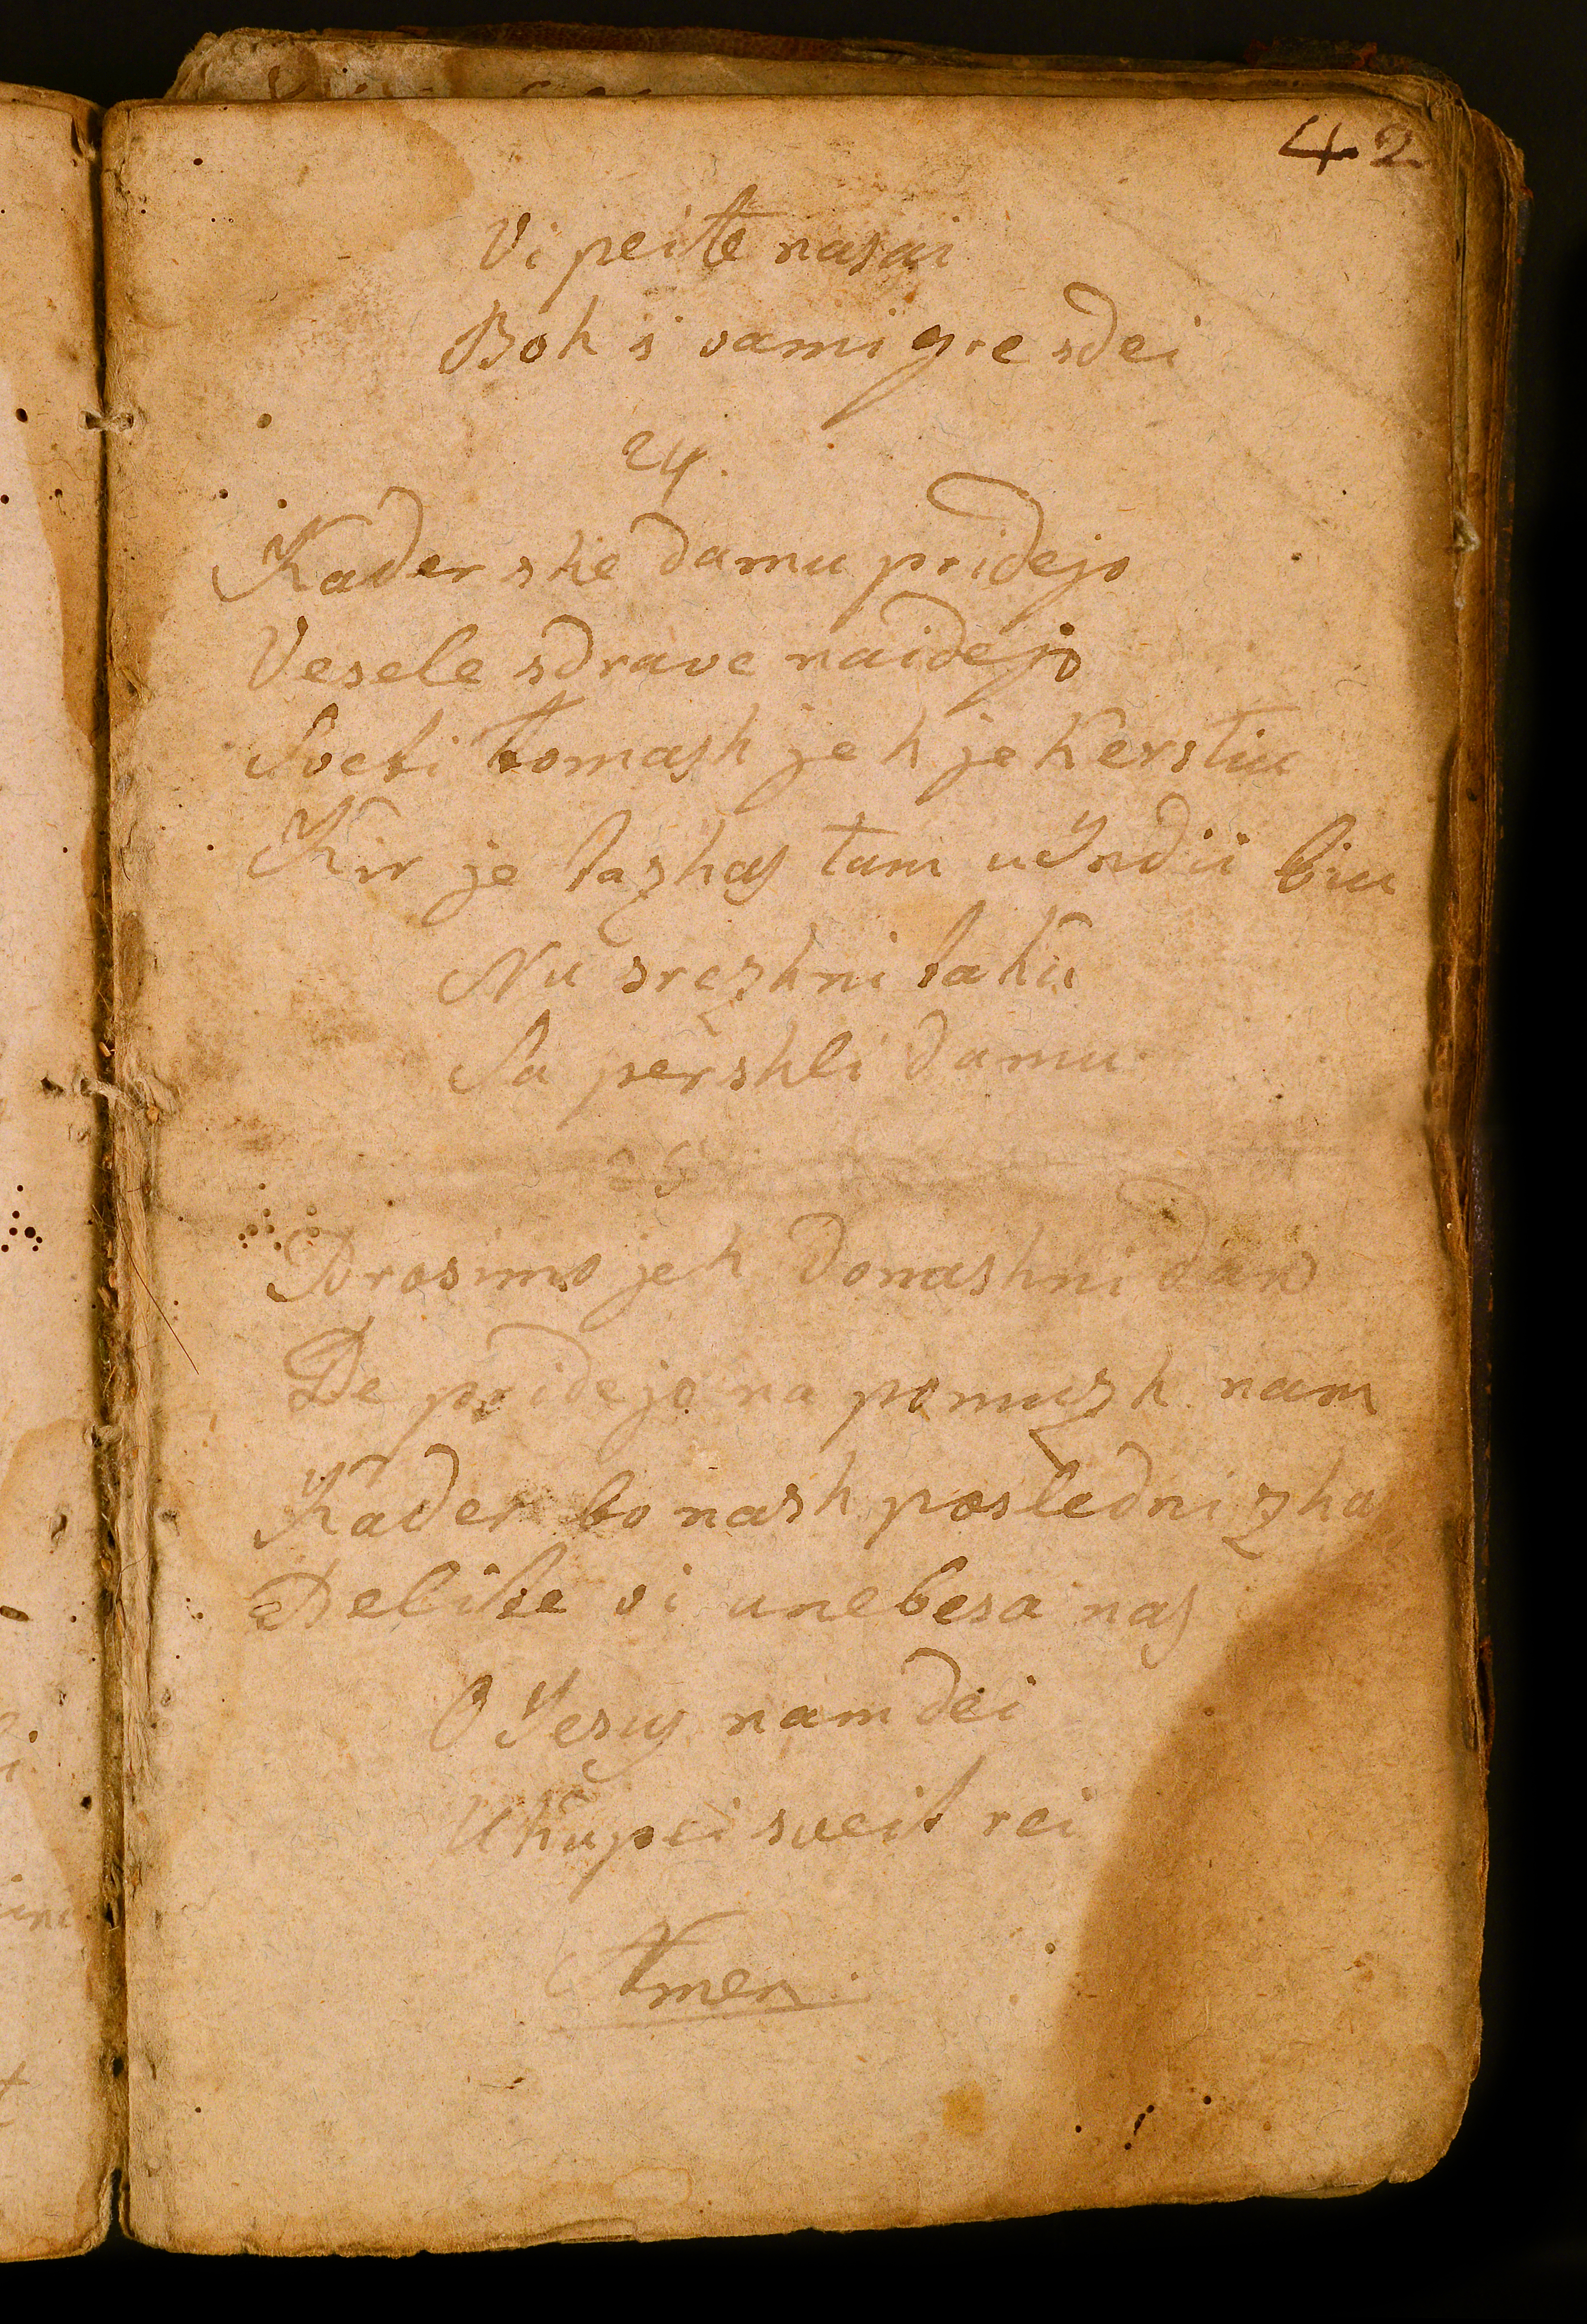 42
Vi peite nasai
Boh s vami gre sdei
24.
Kader she damu pridejo
Vesele sdrave naidejo
Sveti tomash jeh je kerstiu
Kir je tazhas tam u Yndii biu
Nu srezhni taku
Sa pershli damu
25
Prosimo jeh donashni dan
De pridejo na pomuzh nam
Kader bo nash posledni zha
Delite vi unebesa nas
O Jesus nam dei
Ukupei sveit rei
Amen.